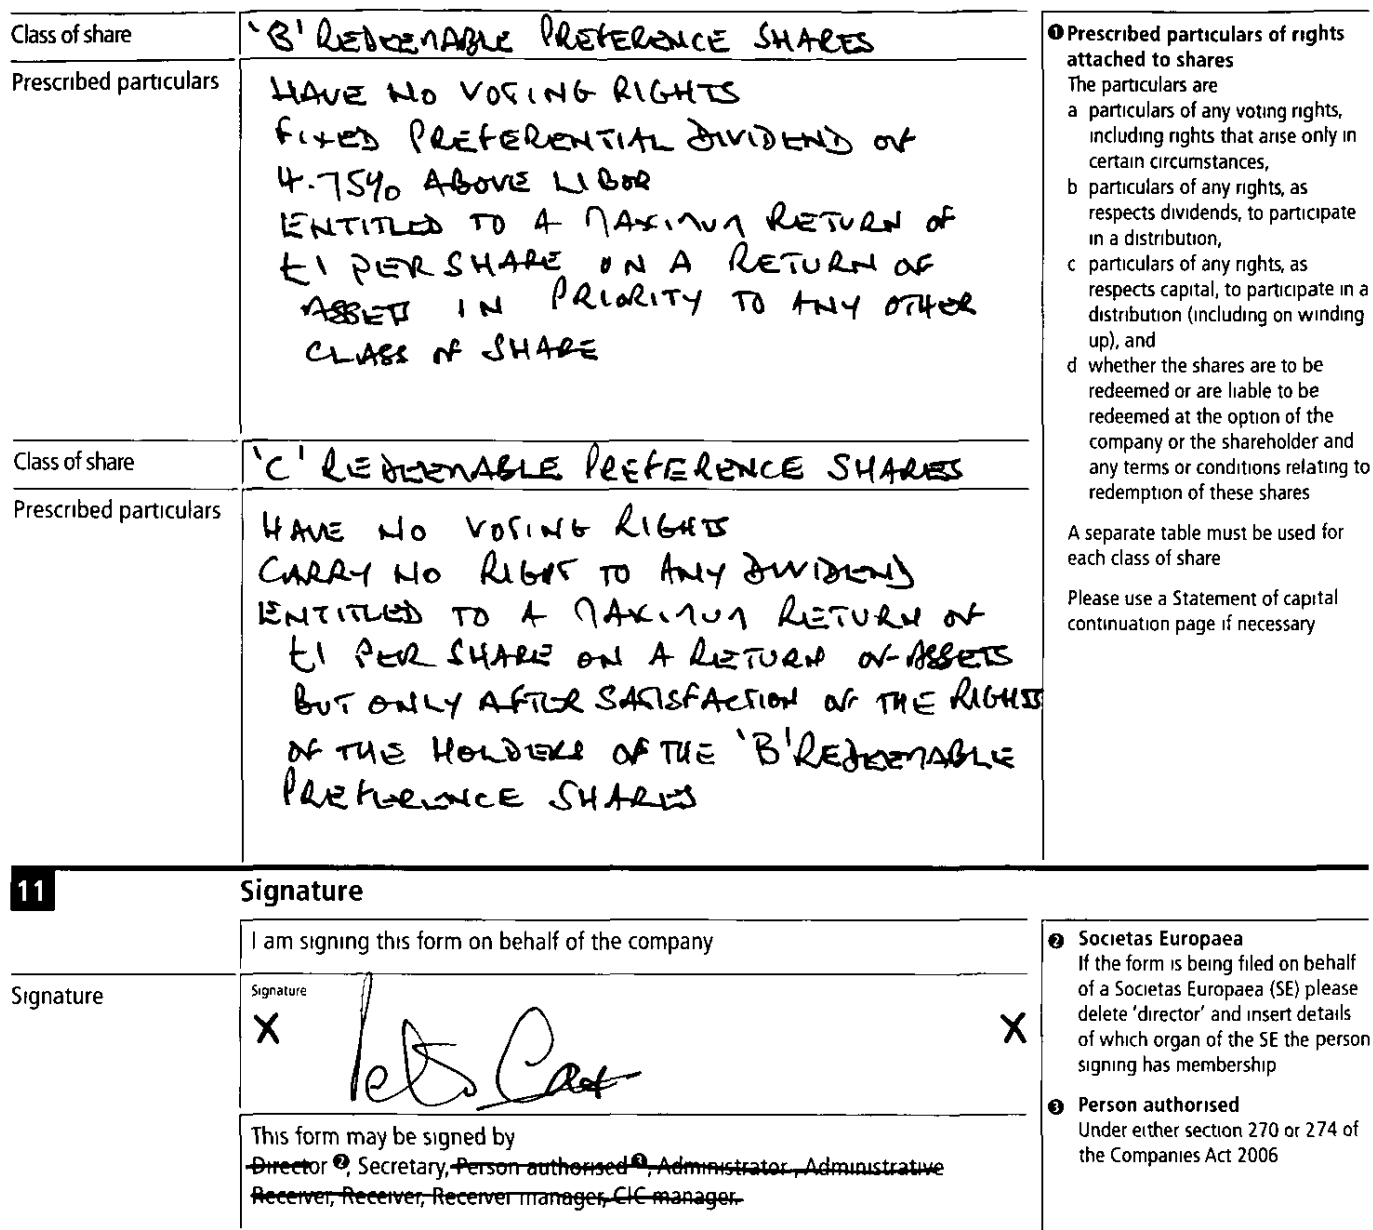 Class of share
'B' REDEEMABLE PREFERENCE SHARES
Prescribed particulars
HAVE NO VOTING RIGHTS
FIXED PREFERENTIAL DIVIDEND OF
4.75% ABOVE LIBOR
ENTITLED TO A MAXIMUM RETURN OF
£1 PER SHARE ON A RETURN OF
ASSETS IN PRIORITY TO ANY OTHER
CLASS OF SHARE
Class of share
'C' REDEEMABLE PREFERENCE SHARES
Prescribed particulars
HAVE NO VOTING RIGHTS
CARRY NO RIGHT TO ANY DIVIDEND
ENTITLED TO A MAXIMUM RETURN OF
£1 PER SHARE ON A RETURN OF ASSETS
BUT ONLY AFTER SATISFACTION OF THE RIGHTS
OF THE HOLDERS OF THE 'B' REDEEMABLE
PREFERENCE SHARES
❶ Prescribed particulars of rights
attached to shares
The particulars are
a particulars of any voting rights,
including rights that arise only in
certain circumstances,
b particulars of any rights, as
respects dividends, to participate
in a distribution,
c particulars of any rights, as
respects capital, to participate in a
distribution (including on winding
up), and
d whether the shares are to be
redeemed or are liable to be
redeemed at the option of the
company or the shareholder and
any terms or conditions relating to
redemption of these shares
A separate table must be used for
each class of share
Please use a Statement of capital
continuation page if necessary
11 Signature
I am signing this form on behalf of the company
Signature
Signature
X X
This form may be signed by
Director ❷, Secretary, Person authorised ❸, Administrator, Administrative
Receiver, Receiver, Receiver manager, CIC manager.
❷ Societas Europaea
If the form is being filed on behalf
of a Societas Europaea (SE) please
delete 'director' and insert details
of which organ of the SE the person
signing has membership
❸ Person authorised
Under either section 270 or 274 of
the Companies Act 2006